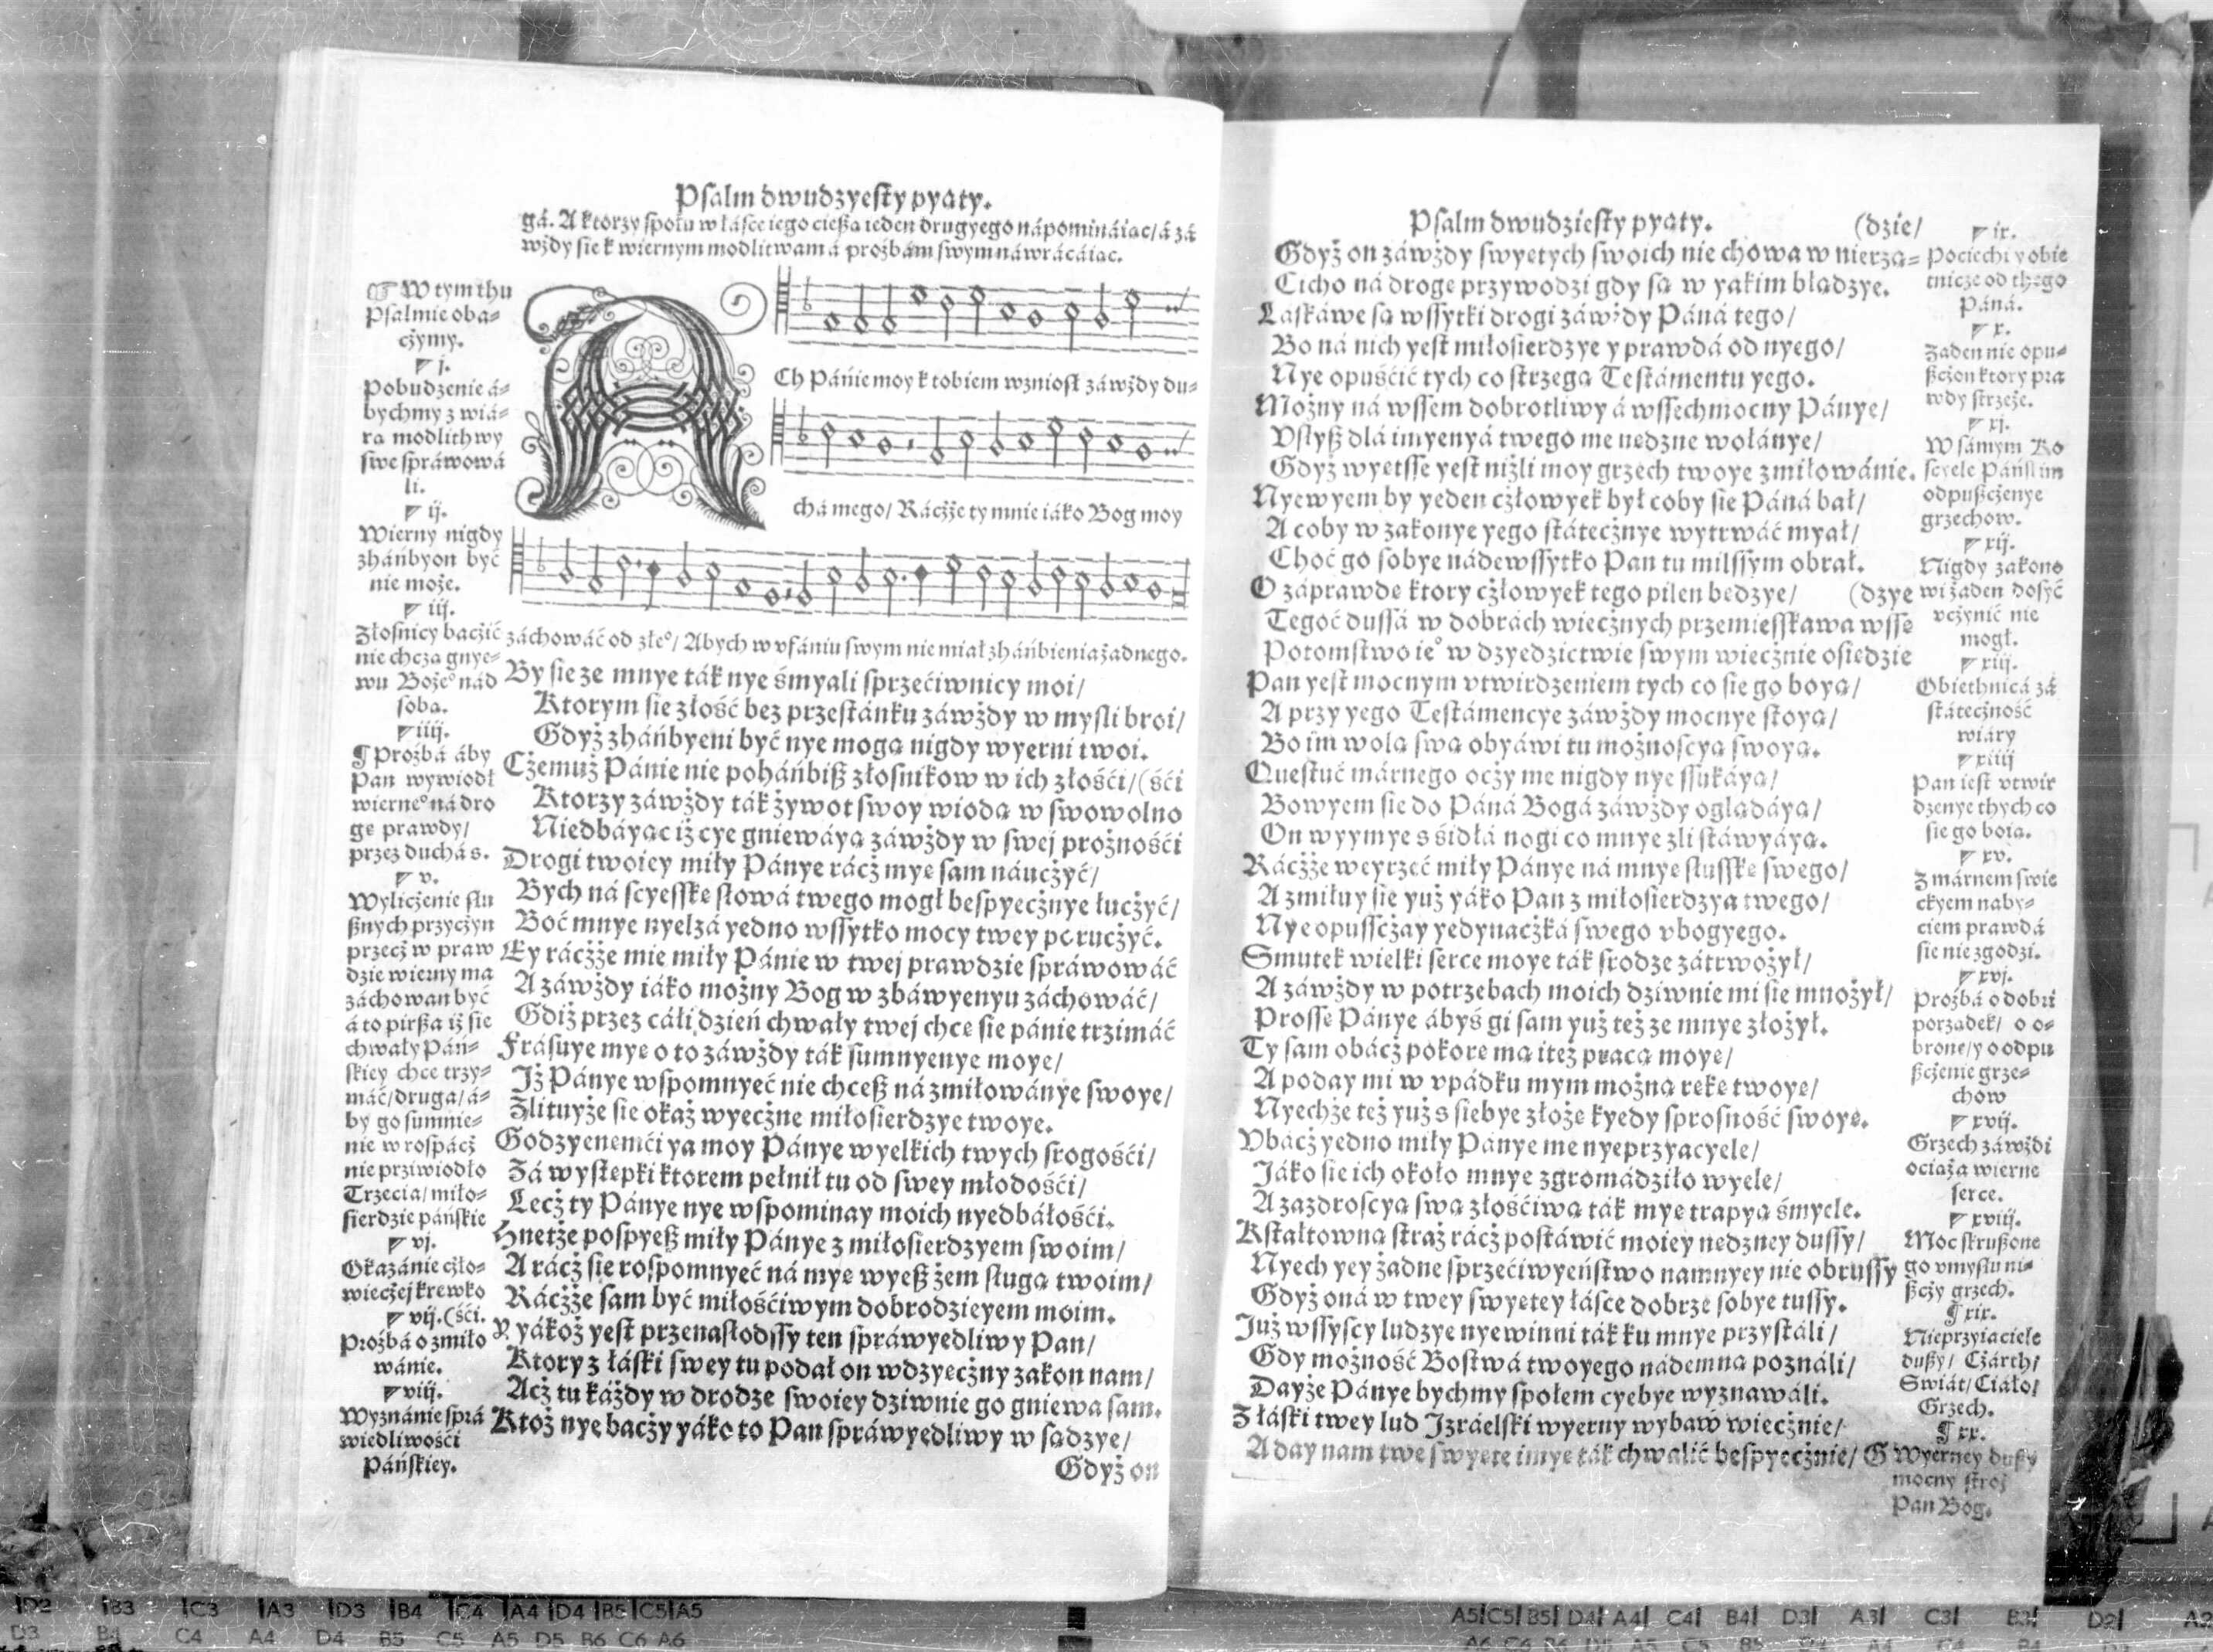 Psalm dwudzyesty pyąty.
gá. A ktorzy społu w łásce iego cießą ieden drugyego nápomináiąc/ á zá
wżdy sie k wiernym modlitwam á proźbam swym náwrácáiąc.
☞ W tym thu
Psalmie oba-
cżymy.
j.
Pobudzenie á-
bychmy z wiá-
rą modlithwy
swe spráwowá
li.
ij.
Wierny nigdy
zháńbyon być
nie może.
iij.
Złosnicy bacżić
nie chcą gnye-
wu Bożeº nád
sobą.
iiij.
¶ Proźbá áby
Pan wywiodł
wierneº ná dro
gę prawdy/
przez duchá s.
v.
Wylicżenie słu
ßnych przycżyn
przecż w praw
dzie wierny ma
záchowan być
á to pirßa iż sie
chwały Páń-
skiey chce trzy-
máć/ druga/ á-
by go sumnie-
nie w rospácż
nie prziwiodło
Trzecia/ miło-
sierdzie páńskie
vj.
Okazánie cżło-
wiecżej krewko
vij. (śći.
Proźbá o zmiło
wánie.
viij.
Wyznánie sprá
wiedliwośći
Páńskiey.
ACh Pánie moy k tobiem wzniosł záwżdy du-
chá mego/ Rácżże ty mnie iáko Bog moy
záchowáć od złeº/ Abych w vfániu swym nie miał zháńbienia żadnego.
By sie ze mnye ták nye śmyali sprzećiwnicy moi/
Ktorym sie złość bez przestánku záwżdy w mysli broi/
Gdyż zháńbyeni być nye mogą nigdy wyerni twoi.
Cżemuż Pánie nie poháńbiß złosnikow w ich złośći/ (śći
Ktorzy záwżdy ták żywot swoy wiodą w swowolno
Niedbáyąc iż cye gniewáyą záwżdy w swej prożnośći
Drogi twoiey miły Pánye rácż mye sam náucżyć/
Bych ná scyesske słowá twego mogł bespyecżnye łucżyć/
Boć mnye nyelzá yedno wssytko mocy twey porucżyć.
Ey rácżże mie miły Pánie w twej prawdzie spráwowáć
A záwżdy iáko możny Bog w zbáwyenyu záchowáć/
Gdiż przez cáłi dzień chwały twej chce sie pánie trzimáć
Frásuye mye o to záwżdy ták sumnyenye moye/
Iż Pánye wspomnyeć nie chceß ná zmiłowánye swoye/
Zlituyże sie okaż wyecżne miłosierdzye twoye.
Godzyenemći ya moy Pánye wyelkich twych srogośći/
Zá wystepki ktorem pełnił tu od swey młodośći/
Lecż ty Pánye nye wspominay moich nyedbáłośći.
Hnetże pospyeß miły Pánye z miłosierdzyem swoim/
A rácż sie rospomnyeć ná mye wyeß żem sługą twoim/
Rácżże sam być miłośćiwym dobrodzieyem moim.
Y yákoż yest przenasłodssy ten spráwyedliwy Pan/
Ktory z łáski swey tu podał on wdzyecżny zakon nam/
Acż tu káżdy w drodze swoiey dziwnie go gniewa sam.
Ktoż nye bacży yáko to Pan spráwyedliwy w sądzye/
Gdyż on
Psalm dwudziesty pyąty.
(dzie/
Gdyż on záwżdy swyetych swoich nie chowa w nierzą-
Cicho ná droge przywodzi gdy są w yákim błądzye.
Láskáwe są wssytki drogi záwżdy Páná tego/
Bo ná nich yest miłosierdzye y prawdá od nyego/
Nye opuśćić tych co strzegą Testámentu yego.
Możny ná wssem dobrotliwy á wssechmocny Pánye/
Vsłyß dlá imyenyá twego me nedzne wołánye/
Gdyż wyetsse yest niżli moy grzech twoye zmiłowánie.
Nyewyem by yeden cżłowyek był coby sie Páná bał/
A coby w zakonye yego státecżnye wytrwáć myał/
Choć go sobye nádewssytko Pan tu milssym obrał.
O záprawde ktory cżłowyek tego pilen bedzye/ (dzye
Tegoć dussá w dobrách wiecżnych przemiesskawa wsse
Potomstwo ieº w dzyedzictwie swym wiecżnie osiedzie
Pan yest mocnym vtwirdzeniem tych co sie go boyą/
A przy yego Testámencye záwżdy mocnye stoyą/
Bo im wolą swą obyáwi tu możnoscyą swoyą.
Questuć márnego ocży me nigdy nye ssukáyą/
Bowyem sie do Páná Bogá záwżdy oglądáyą/
On wyymye s śidłá nogi co mnye zli stáwyáyą.
Rácżże weyrzeć miły Pánye ná mnye słusske swego/
A zmiłuy sie yuż yáko Pan z miłosierdzya twego/
Nye opusscżay yedynacżká swego vbogyego.
Smutek wielki serce moye ták srodze zátrwożył/
A záwżdy w potrzebach moich dziwnie mi sie mnożył/
Prosse Pánye ábyś gi sam yuż też ze mnye złożył.
Ty sam obácż pokore mą iteż pracą moye/
A poday mi w vpádku mym możną reke twoye/
Nyechże też yuż s siebye złoże kyedy sprosność swoye.
Vbácż yedno miły Pánye me nyeprzyacyele/
Jáko sie ich około mnye zgromádziło wyele/
A zazdroscyą swą złośćiwą ták mye trapyą śmyele.
Kstałtowną straż rácż postáwić moiey nedzney dussy/
Nyech yey żadne sprzećiwyeństwo namnyey nie obrussy
Gdyż oná w twey swyetey łásce dobrze sobye tussy.
Już wssyscy ludzye nyewinni ták ku mnye przystáli/
Gdy możność Bostwá twoyego nádemną poználi/
Dayże Pánye bychmy społem cyebye wyznawáli.
Z łáski twey lud Jzráelski wyerny wybaw wiecżnie/
A day nam twe swyete imye ták chwalić bespyecżnie/ G
ix.
Pociechi y obie
tnicze od thego
Páná.
x.
Zaden nie opu-
ßcżon ktory pra
wdy strzeże.
xj.
W sámym Ko
scyele Páńskim
odpußcżenye
grzechow.
xij.
Nigdy zakono
wi żaden dosyć
vcżynić nie
mogł.
xiij.
Obiethnicá zá
státecżność
wiáry
xiiij
Pan iest vtwir
dzenye thych co
sie go boią.
xv.
Z márnem swie
ckyem naby-
ciem prawdá
sie nie zgodzi.
xvj.
Proźbá o dobri
porządek/ o o-
brone/ y o odpu
ßcżenie grze-
chow
xvij.
Grzech záwżdi
ociąża wierne
serce.
xviij.
Moc skrußone
go vmysłu ni-
ßcży grzech.
¶ xix.
Nieprzyiaciele
dußy/ Cżárth/
Swiát/ Ciáło/
Grzech.
¶ xx.
Wyerney dußy
mocny stroż
Pan Bog.
D2 B3 C3 A3 D3 B4 C4 A4 D4 B5 C5 A5
D3 B4 C4 A4 D4 B5 C5 A5 D5 B6 C6 A6
A5 C5 B5 D4 A4 C4 B4 D3 A3 C3 B3 D2 A2